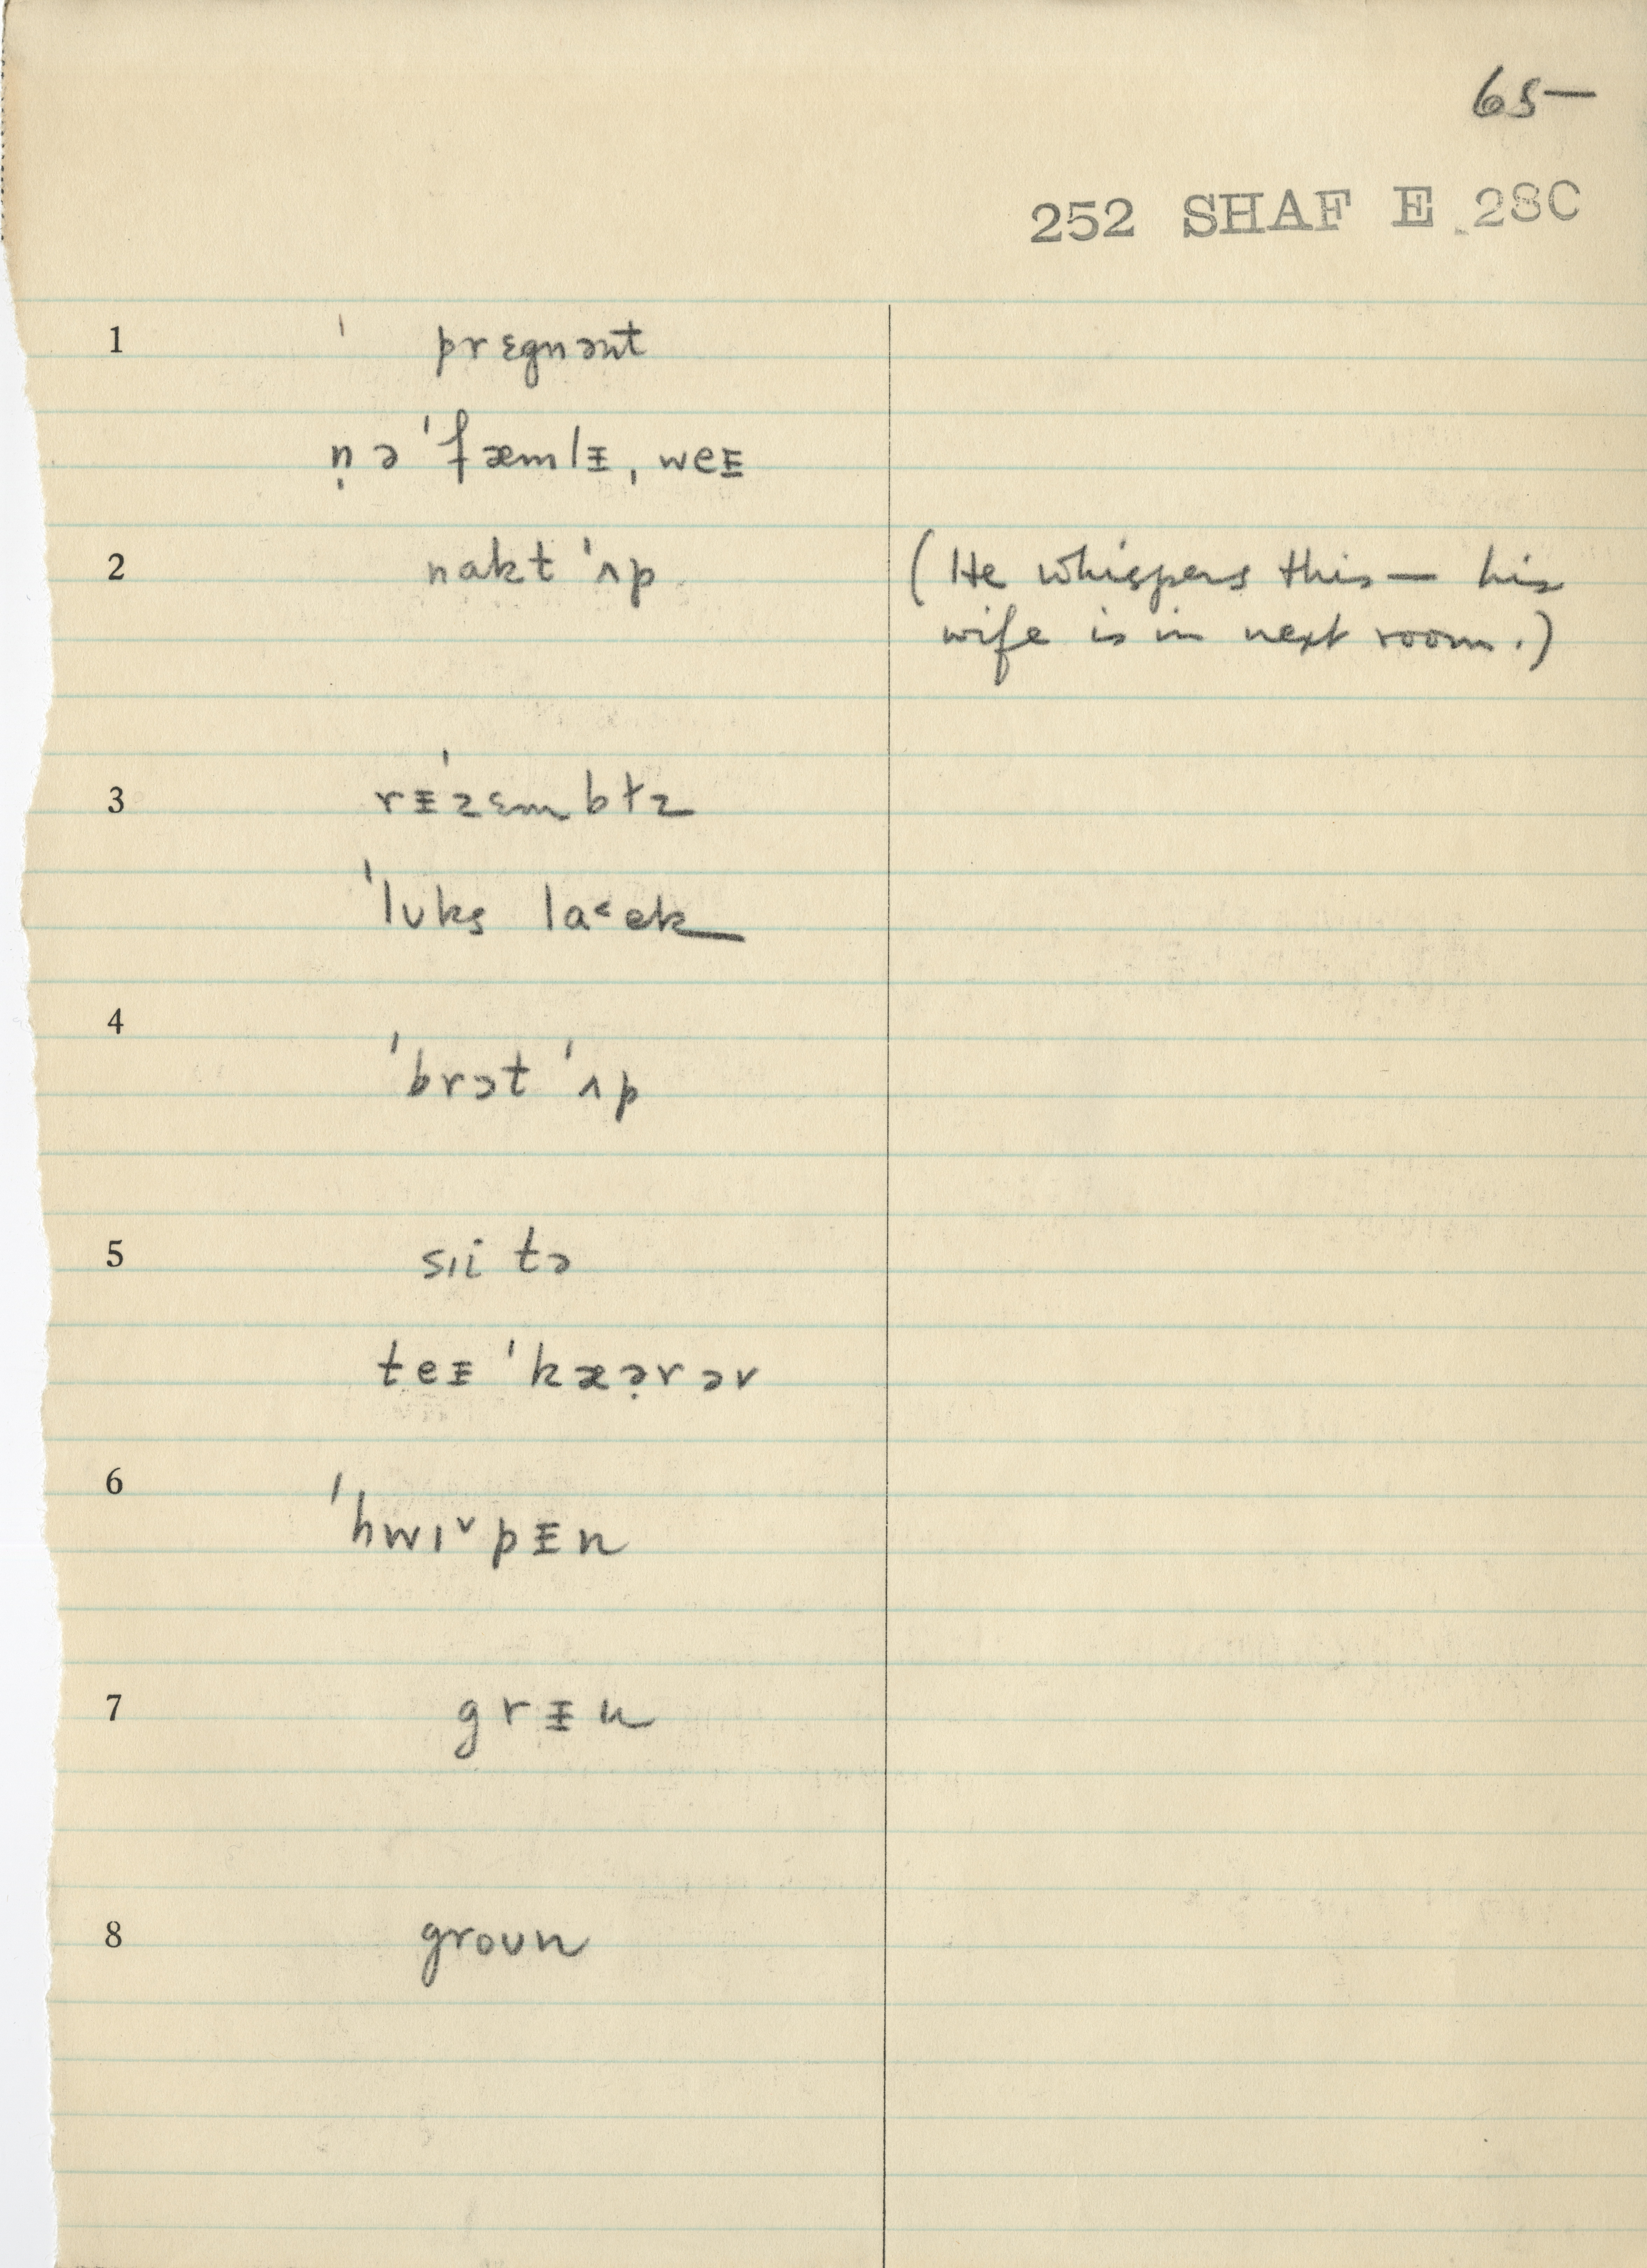 65
252 SHAF E 28C
1 ˈ prɛgnənt
n̩ ə ˈfæmlᵻ, weᵻ
2 nakt ˈʌp
(He whispers this — his
wife is in next room.)
3 rᵻˈzɛmbɫz
ˈlʊks la˂ek
4 ˈbrɔt ˈʌp
5 sɪi tə
teᵻ ˈkæə̣rər
6 ˈhwɪ˅pᵻn
7 grᵻn
8 groʊn